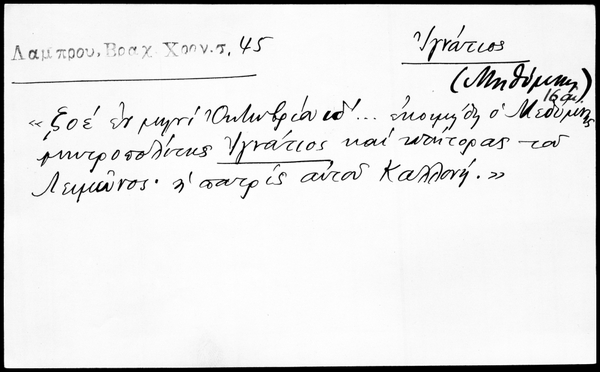 Λάμπρου, Βραχ. Χρον. σ. 45
Ἰγνάτιος
(Μηθύμνης)
16 αἰ.
«ζοέ ἐν μηνί Ὀκτωβρίου ιδ΄... ἐκοιμήθη ὁ Μεθύμνης
μητροπολίτης Ἰγνάτιος καί κτήτορας τοῦ
Λειμῶνος· ἡ πατρίς αὐτοῦ Καλλονή.»